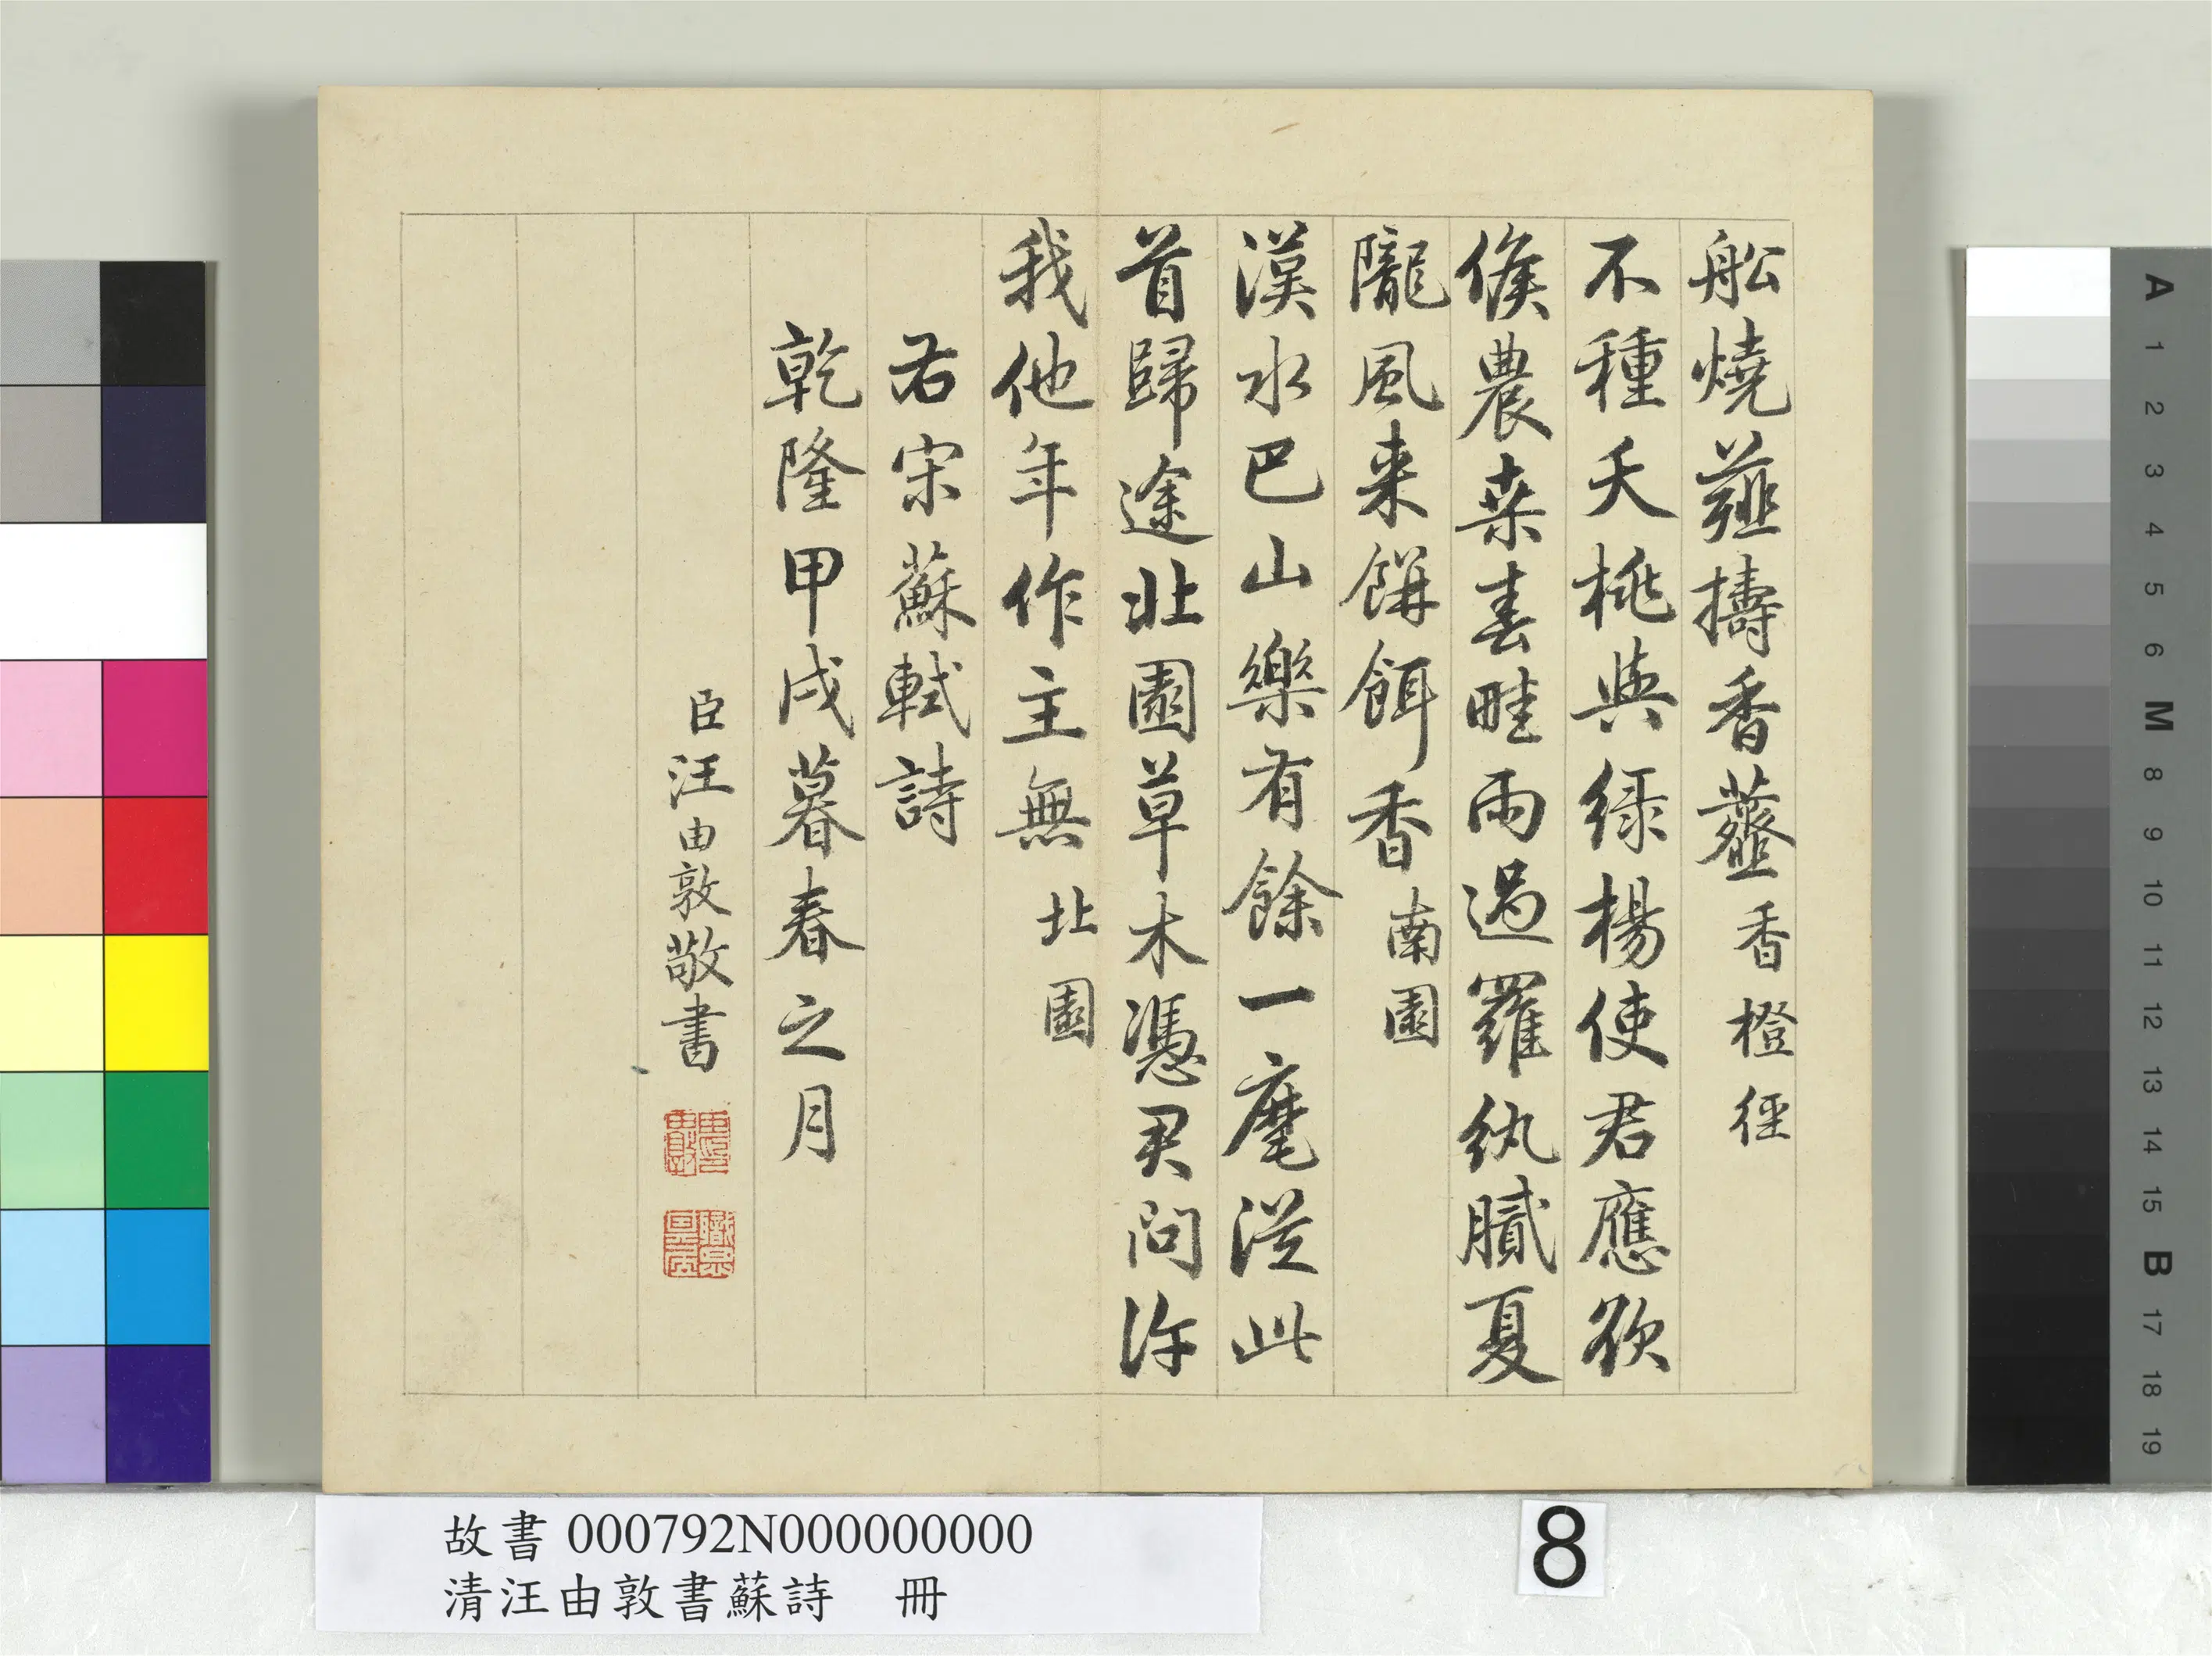 舩燒薤擣香虀香橙徑
不種夭桃與綠楊使君應欲
候農桒春畦雨過羅紈膩夏
隴風来餅餌香南園
漢水巴山樂有餘一麾從此
首歸途北園草木憑君問許
我他年作主無北園
右宋蘇軾詩
乾隆甲戌暮春之月
臣汪由敦敬書
故書000792N000000000
清汪由敦書蘇詩 冊
8
A 1 2 3 4 5 6 M 8 9 10 11 12 13 14 15 B 17 18 19